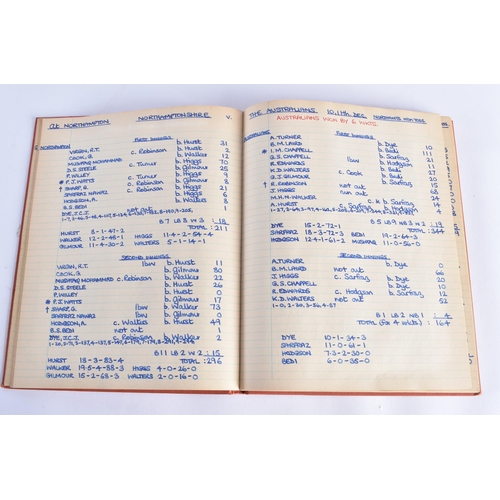 At NORTHAMPTON NORTHAMPTONSHIRE V.
NORTHAMPTON FIRST INNINGS
VIRGIN, R.T. b. Hurst 31
COOK, G. c. Robinson b. Hurst 2
MUSHTAQ MOHAMMAD b. Walker 12
D.S. STEELE c. Turner b. Higgs 70
P. WILLEY b. Gilmour 25
* P.J. WATTS c. Turner b. Higgs 9
† SHARP, G. c. Robinson b. Gilmour 8
SARFRAZ NAWAZ c. Robinson b. Higgs 21
HODGSON, A. b. Higgs 6
B.S. BEDI b. Walker 8
DYE, J.C.J. not out 1
B7 LB8 W3 : 18
TOTAL : 211
HURST 8-1-47-2
WALKER 12-2-48-1 HIGGS 11-4-2-54-4
GILMOUR 11-4-30-2 WALTERS 5-1-14-1
SECOND INNINGS
VIRGIN, R.T. lbw b. Hurst 11
COOK, G. b. Gilmour 80
MUSHTAQ MOHAMMAD c. Robinson b. Walker 22
D.S. STEELE b. Hurst 26
P. WILLEY b. Hurst 0
* P.J. WATTS b. Gilmour 17
† SHARP, G. lbw b. Walker 73
SARFRAZ NAWAZ b. Gilmour 0
HODGSON, A. c. Walters b. Hurst 49
B.S. BEDI not out 1
DYE, J.C.J. c. Robinson b. Walker 2
B11 LB2 W2 : 15
TOTAL : 296
HURST 18-3-83-4
WALKER 19.5-4-88-3 HIGGS 4-0-26-0
GILMOUR 15-2-68-3 WALTERS 2-0-16-0
THE AUSTRALIANS 10, 11th, DEC
AUSTRALIANS WON BY 6 WKTS.
AUSTRALIANS FIRST INNINGS
A. TURNER b. Dye 10
B.M. LAIRD b. Bedi
* I.M. CHAPPELL b. Bedi 111
G.S. CHAPPELL lbw b. Sarfraz 21
R. EDWARDS b. Hodgson
K.D. WALTERS c. Cook b. Bedi 27
G.J. GILMOUR b. Sarfraz
† R. ROBINSON not out 15
J. HIGGS run out 68
M.H.N. WALKER
A. HURST c. & b. Sarfraz
B5 LB9 NB5 : 19
TOTAL : 344
DYE 15-2-72-1
SARFRAZ 18-3-72-3 BEDI 19-2-64-3
HODGSON 12-4-1-61-2 MUSHTAQ 11-0-56-0
SECOND INNINGS
A. TURNER b. Dye 0
B.M. LAIRD not out 66
J. HIGGS c. Sarfraz b. Dye 20
G.S. CHAPPELL
R. EDWARDS c. Hodgson b. Sarfraz 12
K.D. WALTERS not out 52
B1 LB2 NB1 : 4
TOTAL (for 4 wkts) : 164
DYE 10-1-34-3
SARFRAZ 11-0-61-1
HODGSON 7-3-2-30-0
BEDI 6-0-35-0